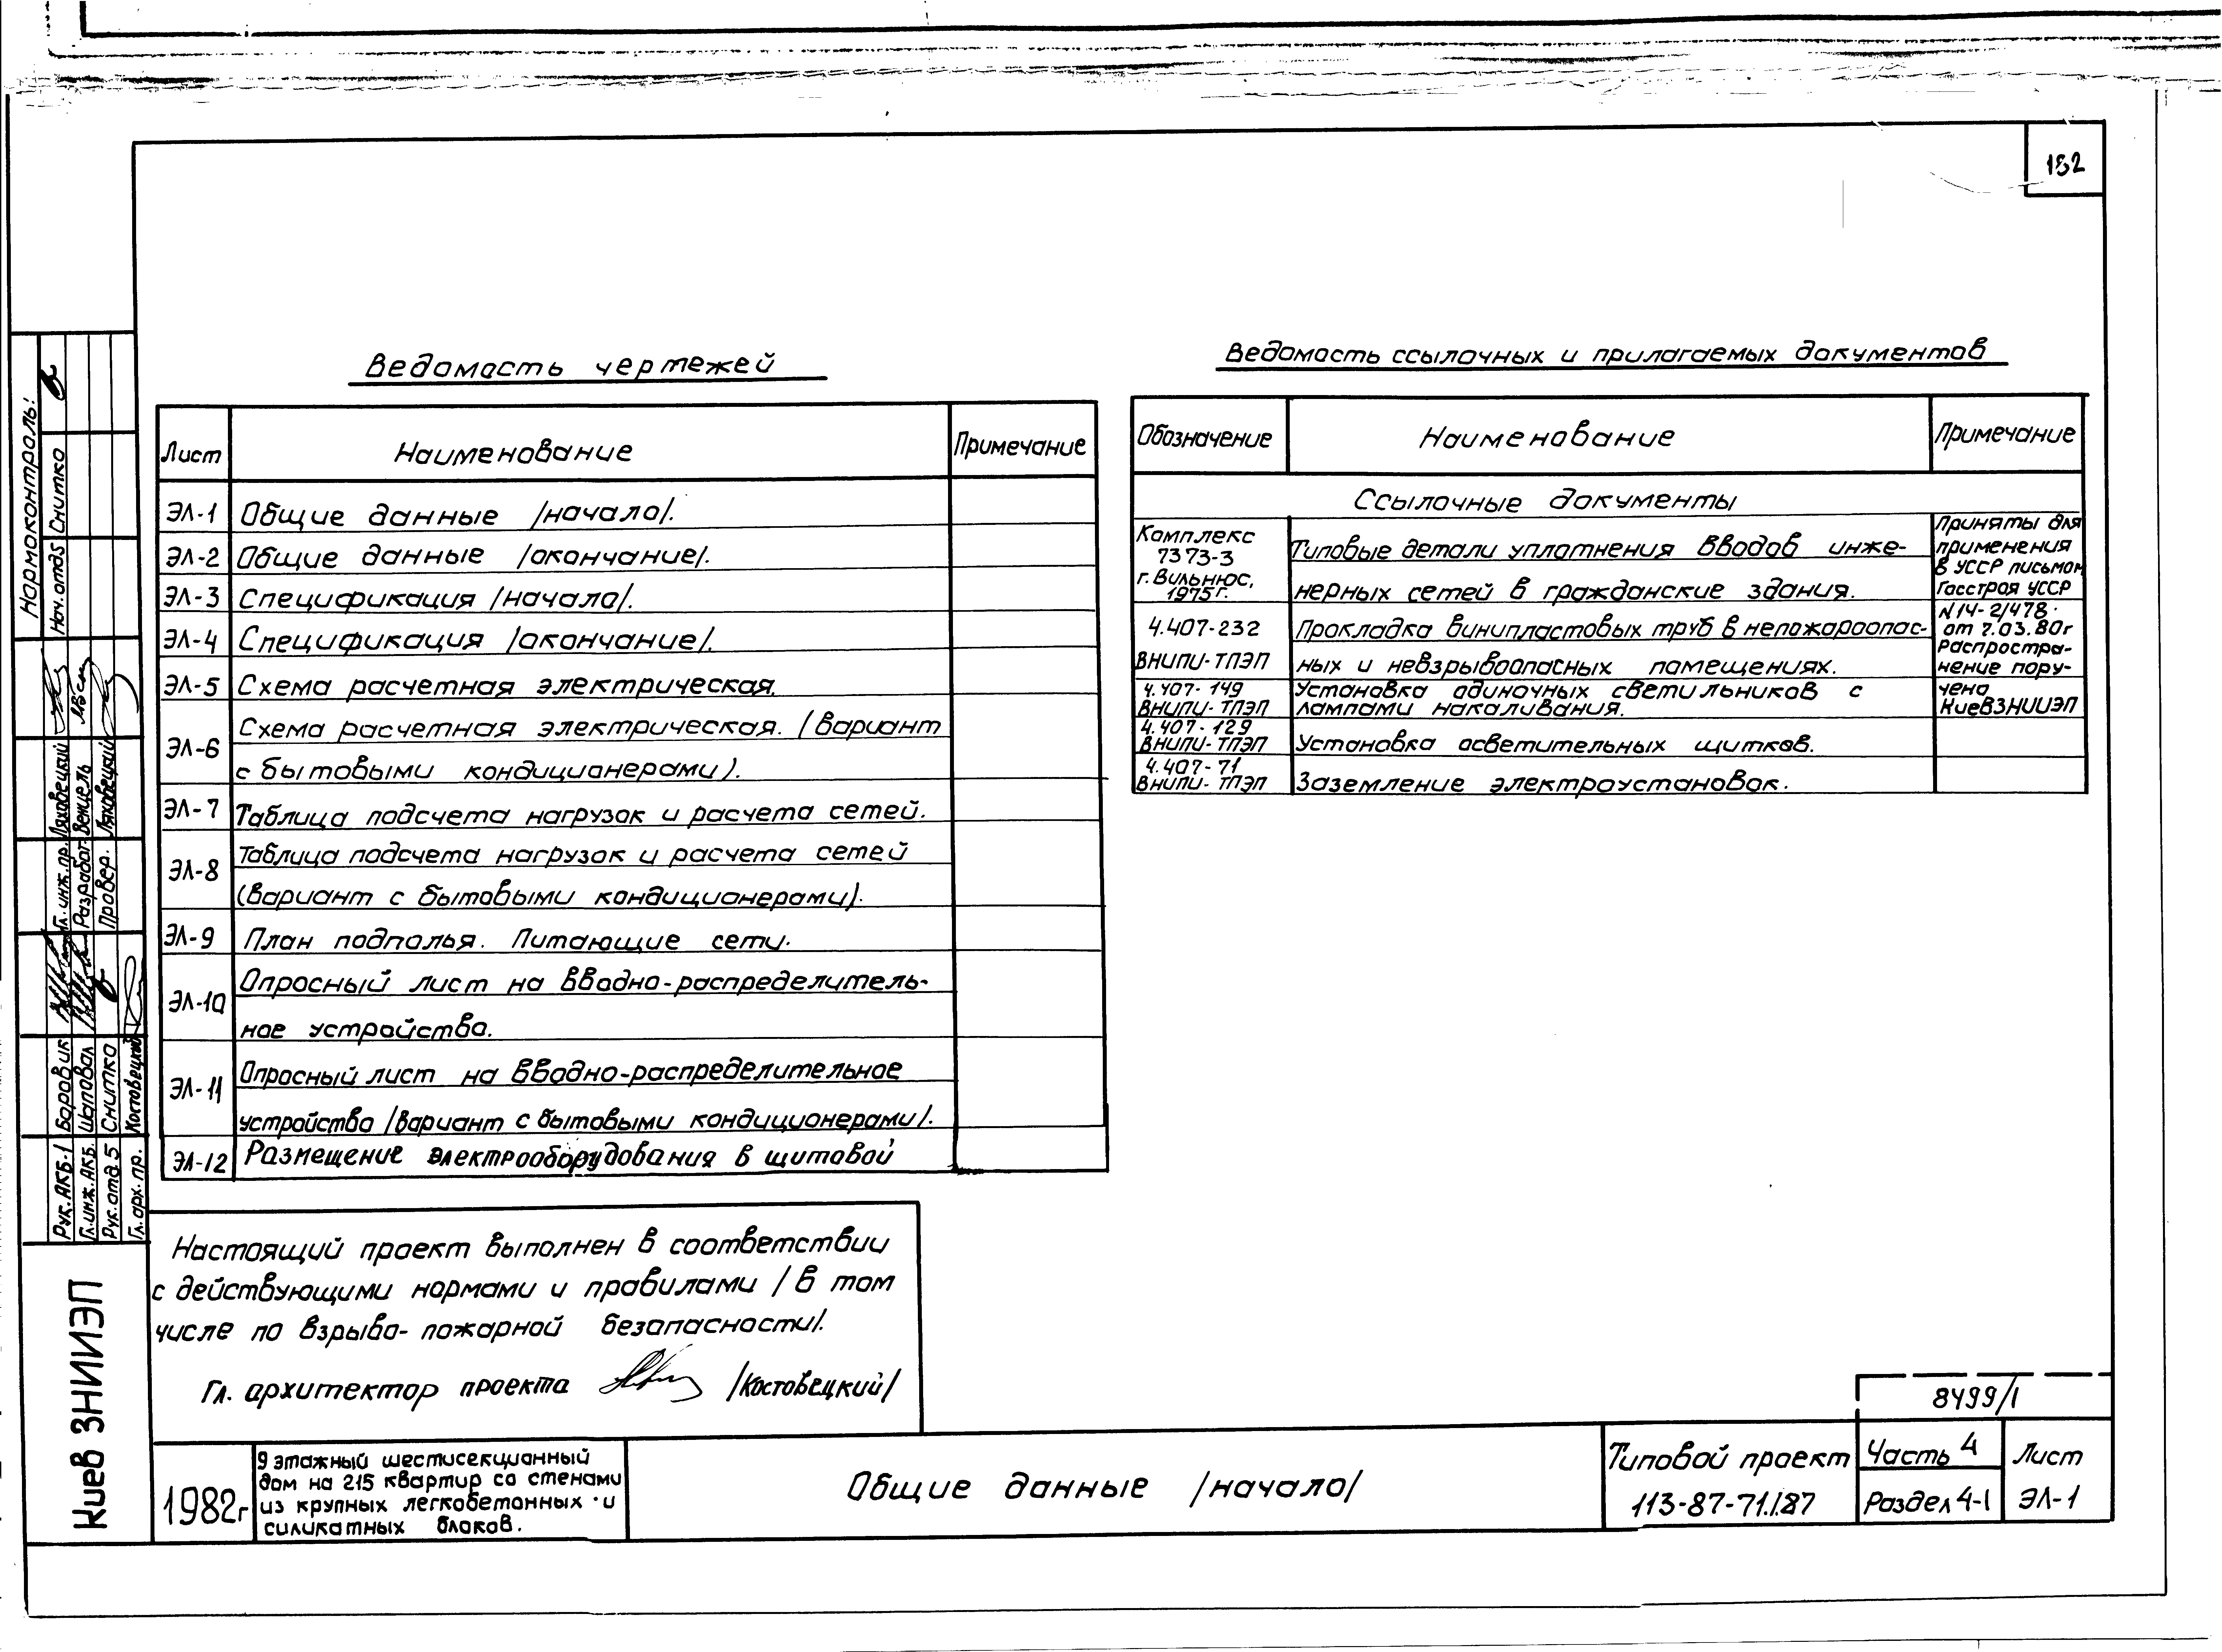 152
Ведомость чертежей
Лист Наименование Примечание
ЭЛ-1 Общие данные /начало/.
ЭЛ-2 Общие данные /окончание/.
ЭЛ-3 Спецификация /начало/.
ЭЛ-4 Спецификация /окончание/.
ЭЛ-5 Схема расчетная электрическая.
ЭЛ-6 Схема расчетная электрическая. (вариант
с бытовыми кондиционерами).
ЭЛ-7 Таблица подсчета нагрузок и расчета сетей.
ЭЛ-8 Таблица подсчета нагрузок и расчета сетей
(вариант с бытовыми кондиционерами).
ЭЛ-9 План подполья. Питающие сети.
ЭЛ-10 Опросный лист на вводно-распределитель-
ное устройство.
ЭЛ-11 Опросный лист на вводно-распределительное
устройство /вариант с бытовыми кондиционерами/.
ЭЛ-12 Размещение электрооборудования в щитовой
Ведомость ссылочных и прилагаемых документов
Обозначение Наименование Примечание
Ссылочные документы
Комплекс
7373-3
г. Вильнюс,
1975г.
Типовые детали уплотнения вводов инже-
нерных сетей в гражданские здания.
4.407-232
ВНИПИ-ТПЭП
Прокладка винипластовых труб в непожароопас-
ных и невзрывоопасных помещениях.
4.407-149
ВНИПИ-ТПЭП
Установка одиночных светильников с
лампами накаливания.
4.407-129
ВНИПИ-ТПЭП
Установка осветительных щитков.
4.407-71
ВНИПИ-ТПЭП
Заземление электроустановок.
Приняты для
применения
в УССР письмом
Госстроя УССР
N14-2/478
от 7.03.80г
Распростра-
нение пору-
чено
КиевЗНИИЭП
Настоящий проект выполнен в соответствии
с действующими нормами и правилами /в том
числе по взрыво-пожарной безопасности/.
Гл. архитектор проекта /Костовецкий/
Нормоконтроль:
Нач. отд5 Снитко
Гл. инж. пр. Ляховецкий
Разработ. Венцель
Провер. Ляховецкий
Рук. АКБ-1 Боровик
Гл. инж. АКБ. Шаповал
Рук. отд. 5 Снитко
Гл. арх. пр. Костовецкий
Киев ЗНИИЭП
1982г
9 этажный шестисекционный
дом на 215 квартир со стенами
из крупных легкобетонных и
силикатных блоков.
Общие данные /начало/
8499/1
Типовой проект
113-87-71.1.87
Часть 4
Раздел 4-1
Лист
ЭЛ-1